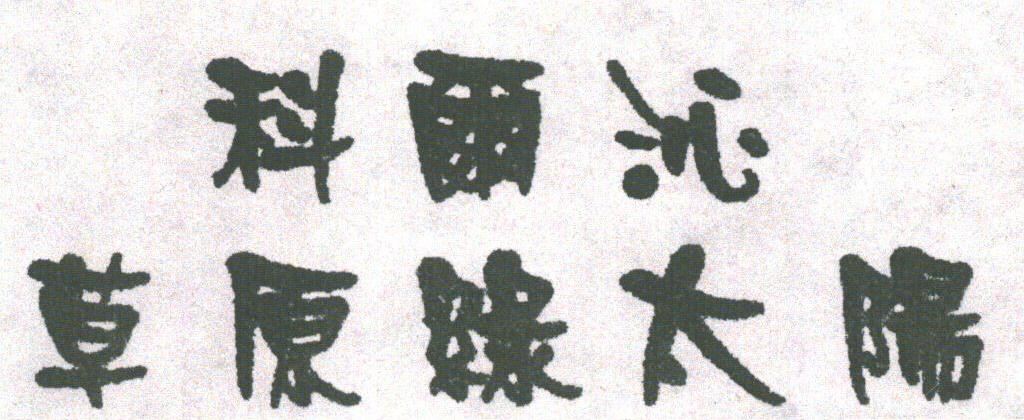 科爾沁
草原綠太陽